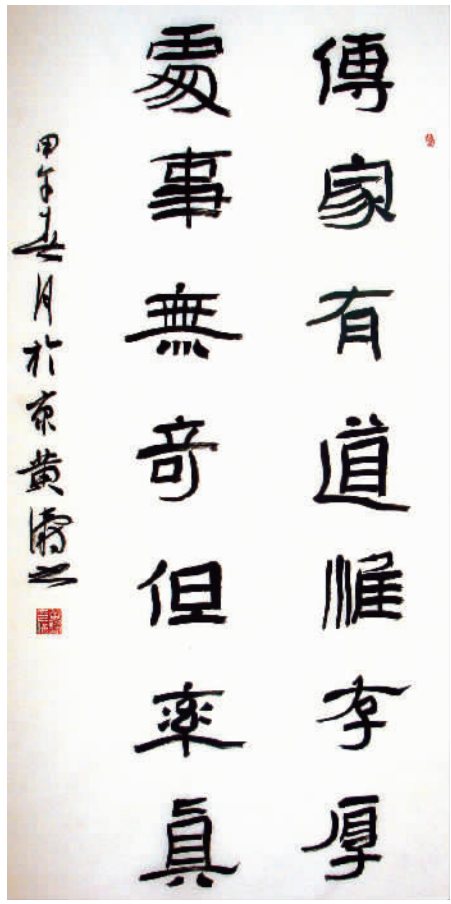 傳家有道惟存厚
處事無奇但率真
甲午春月於京黄濤之